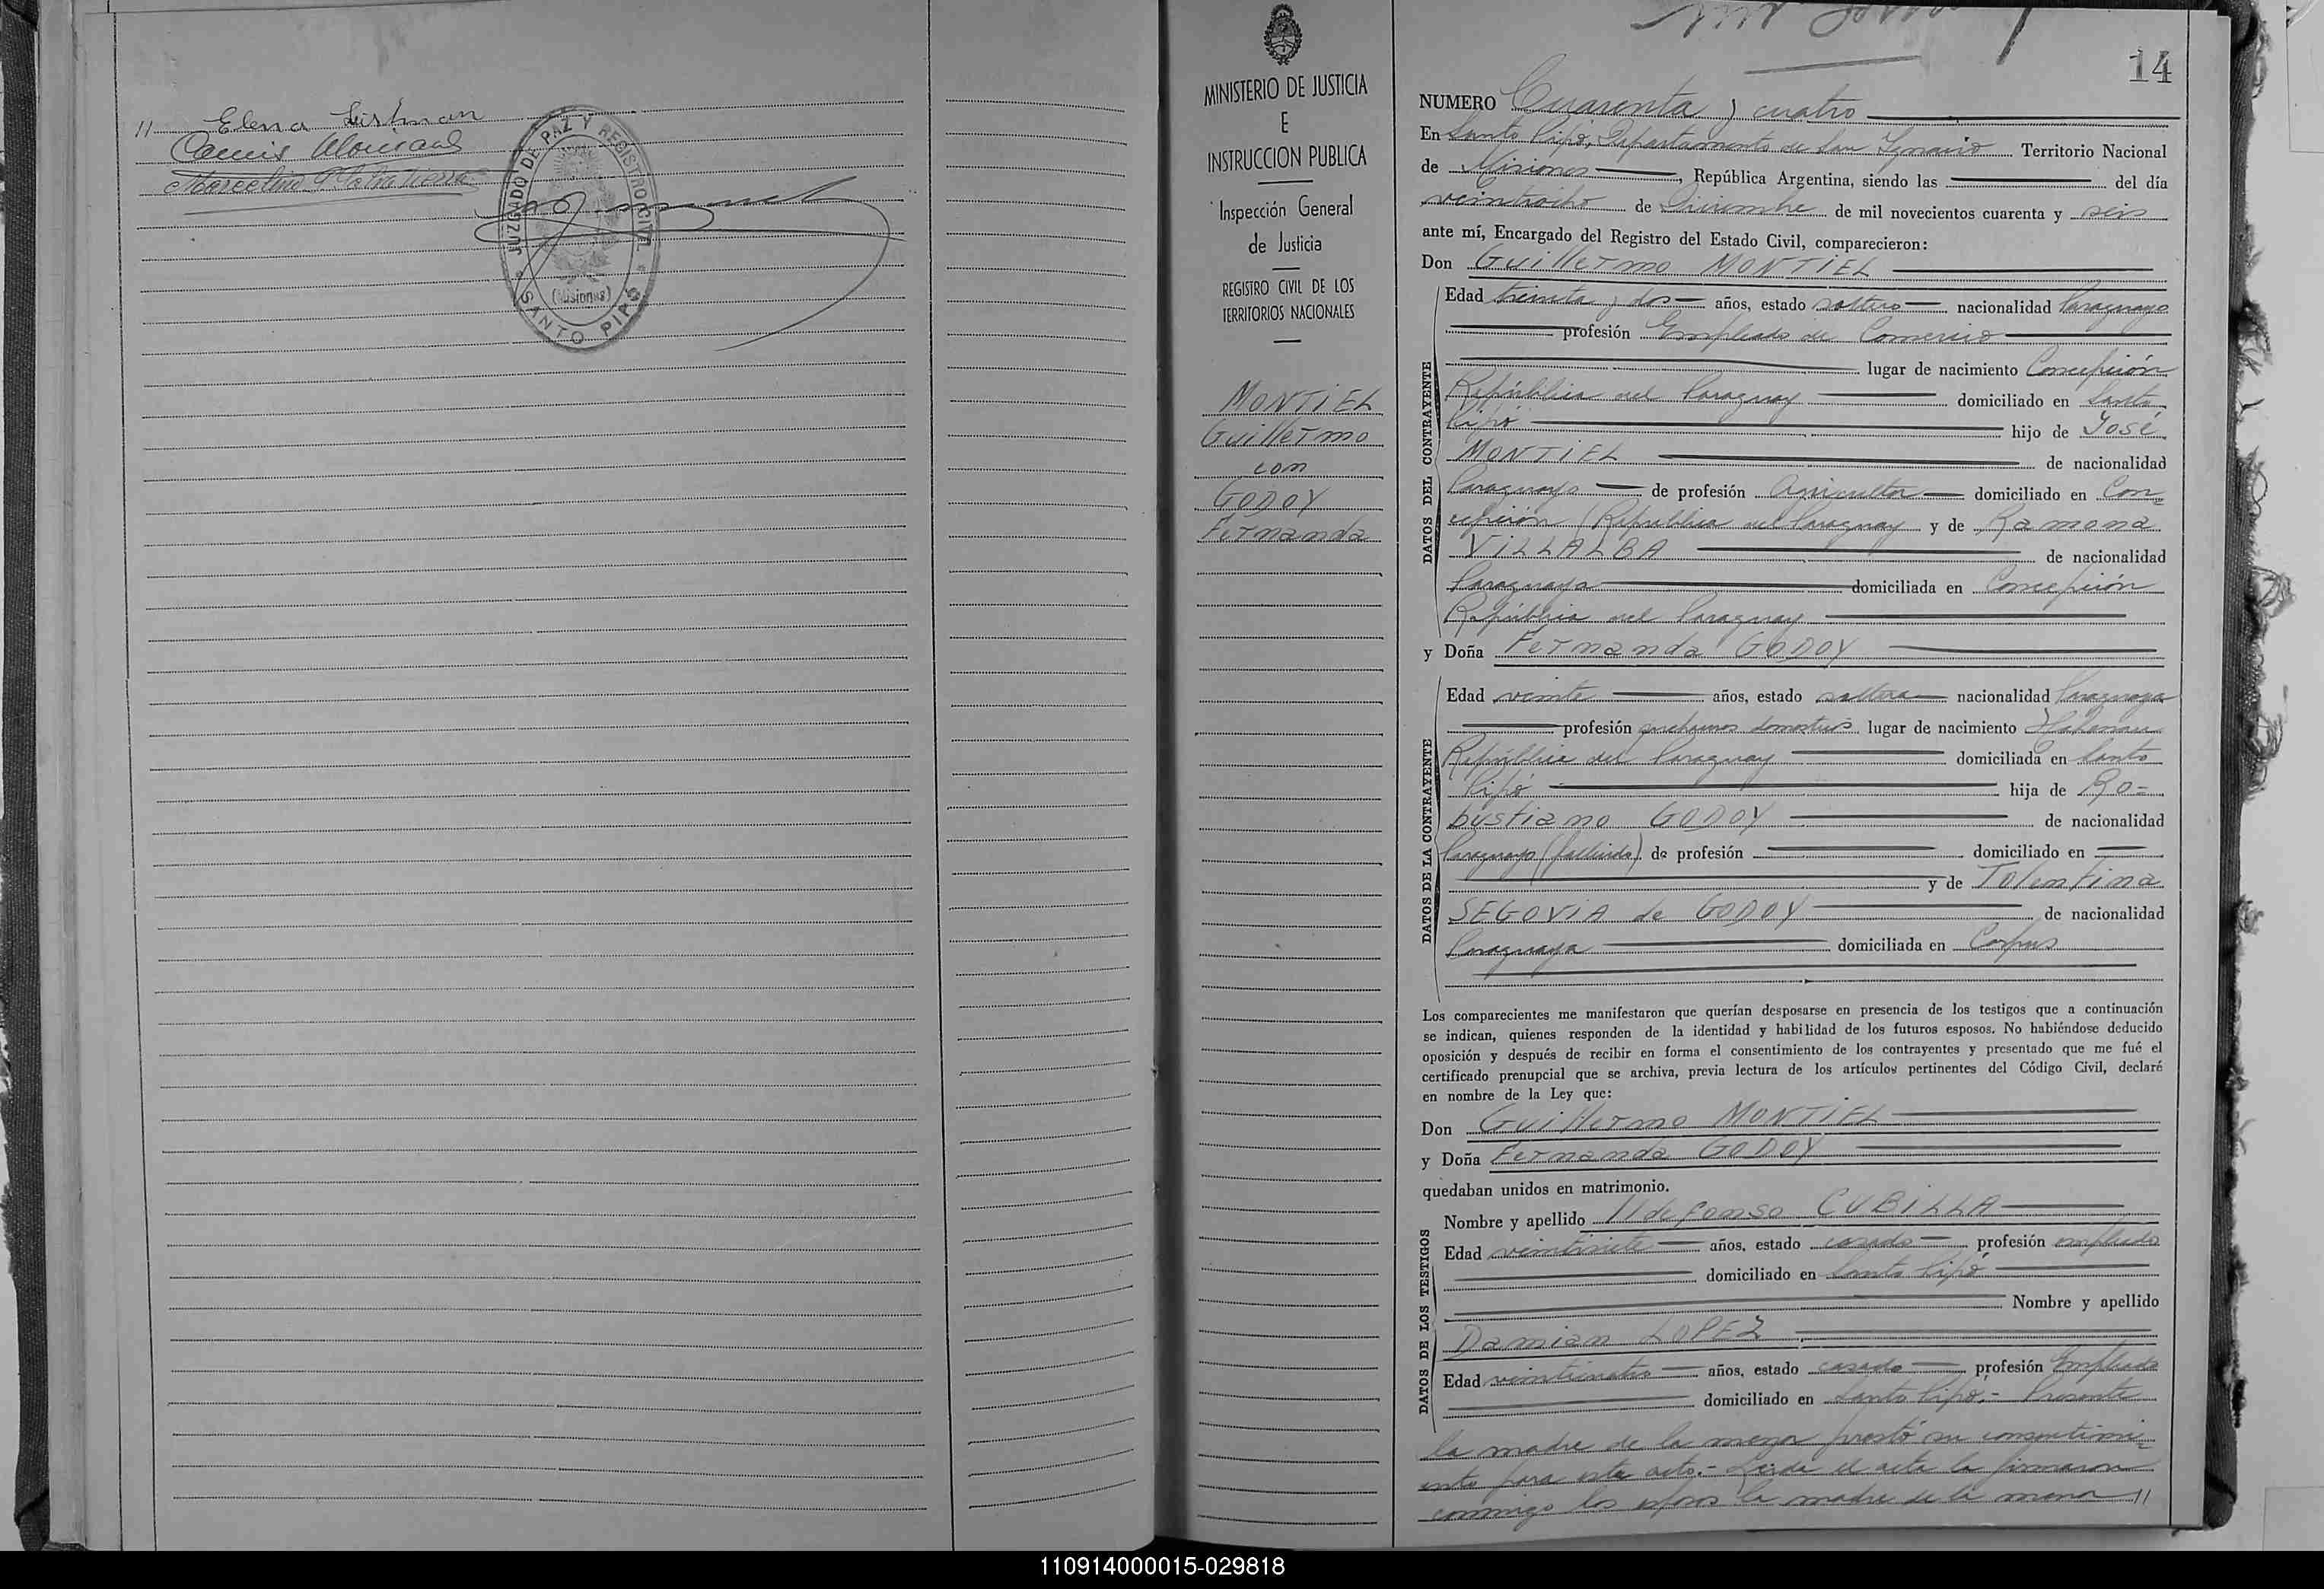 // Elena Listman
JUZGADO DE PAZ Y REGISTRO CIVIL
(Misiones)
SANTO PIPÓ
MINISTERIO DE JUSTICIA
E
INSTRUCCION PUBLICA
Inspección General
de Justicia
REGISTRO CIVIL DE LOS
TERRITORIOS NACIONALES
MONTIEL
Guillermo
con
GODOY
Fernanda
14
NUMERO Cuarenta y cuatro
En Santo Pipó, Departamento de San Ignacio Territorio Nacional
de Misiones, República Argentina, siendo las del día
veintiocho de Diciembre de mil novecientos cuarenta y seis
ante mí, Encargado del Registro del Estado Civil, comparecieron:
Don Guillermo MONTIEL
DATOS DEL CONTRAYENTE
Edad treinta y dos años, estado soltero nacionalidad Paraguayo
profesión Empleado de Comercio
lugar de nacimiento Concepción
República del Paraguay domiciliado en Santo
Pipó hijo de José
MONTIEL de nacionalidad
Paraguayo de profesión Agricultor domiciliado en Con-
cepción República del Paraguay y de Ramona
VILLALBA de nacionalidad
Paraguaya domiciliada en Concepción
República del Paraguay
y Doña Fernanda GODOY
DATOS DE LA CONTRAYENTE
Edad veinte años, estado soltera nacionalidad Paraguaya
profesión quehaceres domesticos lugar de nacimiento
República del Paraguay domiciliada en Santo
Pipó hija de Ro-
bustiano GODOY de nacionalidad
Paraguayo (fallecido) de profesión domiciliado en
y de Tolentina
SEGOVIA de GODOY de nacionalidad
Paraguaya domiciliada en Corpus
Los comparecientes me manifestaron que querían desposarse en presencia de los testigos que a continuación
se indican, quienes responden de la identidad y habilidad de los futuros esposos. No habiéndose deducido
oposición y después de recibir en forma el consentimiento de los contrayentes y presentado que me fué el
certificado prenupcial que se archiva, previa lectura de los artículos pertinentes del Código Civil, declaré
en nombre de la Ley que:
Don Guillermo MONTIEL
y Doña Fernanda GODOY
quedaban unidos en matrimonio.
DATOS DE LOS TESTIGOS
Nombre y apellido Ildefonso CUBILLA
Edad veintisiete años, estado casado profesión empleado
domiciliado en Santo Pipó
Nombre y apellido
Damian LOPEZ
Edad veinticuatro años, estado casado profesión Empleado
domiciliado en Santo Pipó.- Presente
la madre de la menor prestó su consentimi-
ento para este acto.- Leída el acta la firmaron
conmigo los esposos la madre de la menor //
110914000015-029818